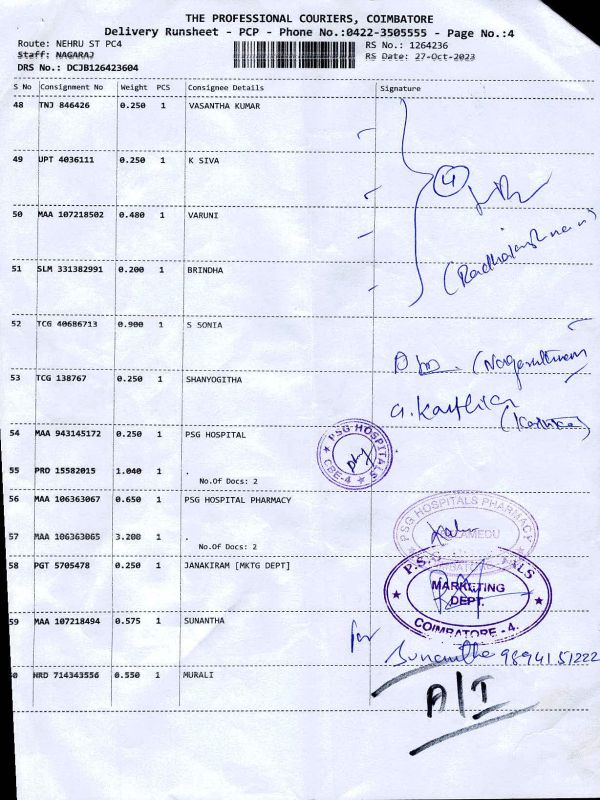 THE PROFESSIONAL COURIERS, COIMBATORE
Delivery Runsheet - PCP - Phone No.:0422-3505555 - Page No.:4
Route: NEHRU ST PC4 RS No.: 1264236
Staff: NAGARAJ RS Date: 27-Oct-2023
DRS No.: DCJB126423604
S No Consignment No Weight PCS Consignee Details Signature
48 TNJ 846426 0.250 1 VASANTHA KUMAR
49 UPT 4036111 0.250 1 K SIVA
4
50 MAA 107218502 0.480 1 VARUNI
51 SLM 331382991 0.200 1 BRINDHA
(Radhakrishnan)
52 TCG 40686713 0.900 1 S SONIA
53 TCG 138767 0.250 1 SHANYOGITHA
G. Karthica
54 MAA 943145172 0.250 1 PSG HOSPITAL
PSG HOSPITALS
CBE-4
55 PRD 15582015 1.040 1 .
No.Of Docs: 2
56 MAA 106363067 0.650 1 PSG HOSPITAL PHARMACY
PSG HOSPITALS PHARMACY
57 MAA 106363065 3.200 1 .
No.Of Docs: 2
58 PGT 5705478 0.250 1 JANAKIRAM [MKTG DEPT]
MARKETING
DEPT.
COIMBATORE - 4.
59 MAA 107218494 0.575 1 SUNANTHA
for Sunantha 9894151222
0 HRD 714343556 0.550 1 MURALI
A/I